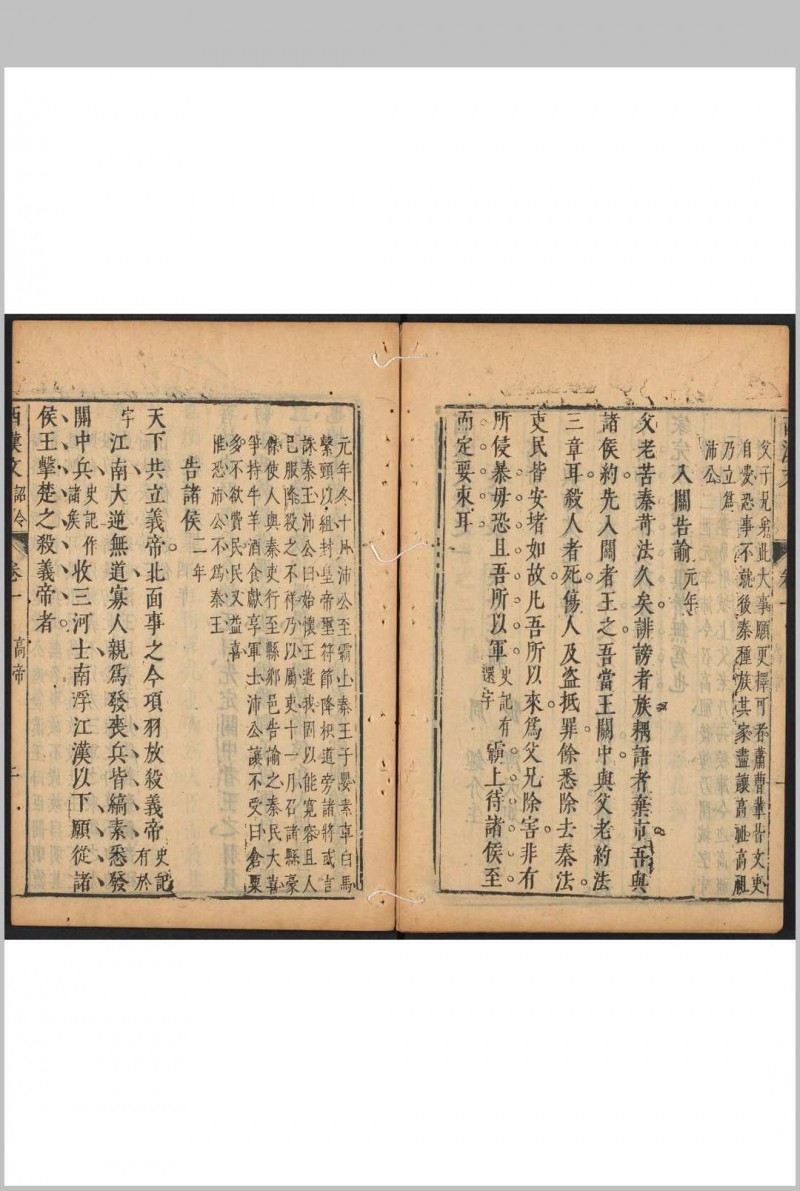 父子兄弟此大事願更擇可者蕭曹輩皆文吏
自愛恐事不就後秦種族其家盡讓高祖高祖
乃立為
沛公
入關告諭 元年
父老苦秦苛法久矣誹謗者族耦語者棄市吾與
諸侯約先入關者王之吾當王關中與父老約法
三章耳殺人者死傷人及盗抵罪餘悉除去秦法
吏民皆安堵如故凡吾所以來爲父兄除害非有
所侵暴毋恐且吾所以軍 史記有還字 霸上待諸侯至
而定要束耳
元年冬十月沛公至霸上秦王子嬰素車白馬
繫頸以組封皇帝璽符節降枳道旁諸將或言
誅秦王沛公曰始懷王遣我固以能寬容且人
已服降殺之不祥乃以屬吏十一月召諸縣豪
傑使人與秦吏行至縣鄉邑告諭之秦民大喜
爭持牛羊酒食獻享軍士沛公讓不受曰倉粟
多不欲費民民又益喜
惟恐沛公不為秦王
告諸侯 二年
天下共立義帝北面事之今項羽放殺義帝 史記有於
字 江南大逆無道寡人親爲發喪兵皆縞素悉發
關中兵 史記作諸侯 收三河士南浮江漢以下願從諸
侯王擊楚之殺義帝者
西漢文 詔令 卷一 高帝 二